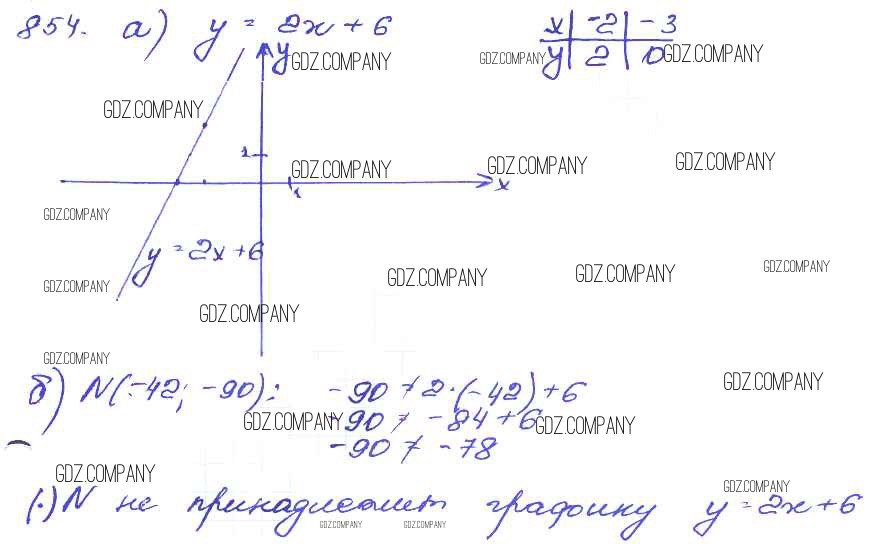 854. а) y = 2x + 6
x | -2 | -3
y | 2 | 0
y
GDZ.COMPANY GDZ.COMPANY GDZ.COMPANY
GDZ.COMPANY
1
GDZ.COMPANY GDZ.COMPANY GDZ.COMPANY
1 x
GDZ.COMPANY
y = 2x + 6
GDZ.COMPANY GDZ.COMPANY GDZ.COMPANY GDZ.COMPANY
GDZ.COMPANY
GDZ.COMPANY
б) N(-42; -90): -90 ≠ 2·(-42) + 6
GDZ.COMPANY
-90 ≠ -84 + 6
GDZ.COMPANY GDZ.COMPANY
-90 ≠ -78
GDZ.COMPANY GDZ.COMPANY
(·) N не принадлежит графику y = 2x + 6
GDZ.COMPANY GDZ.COMPANY